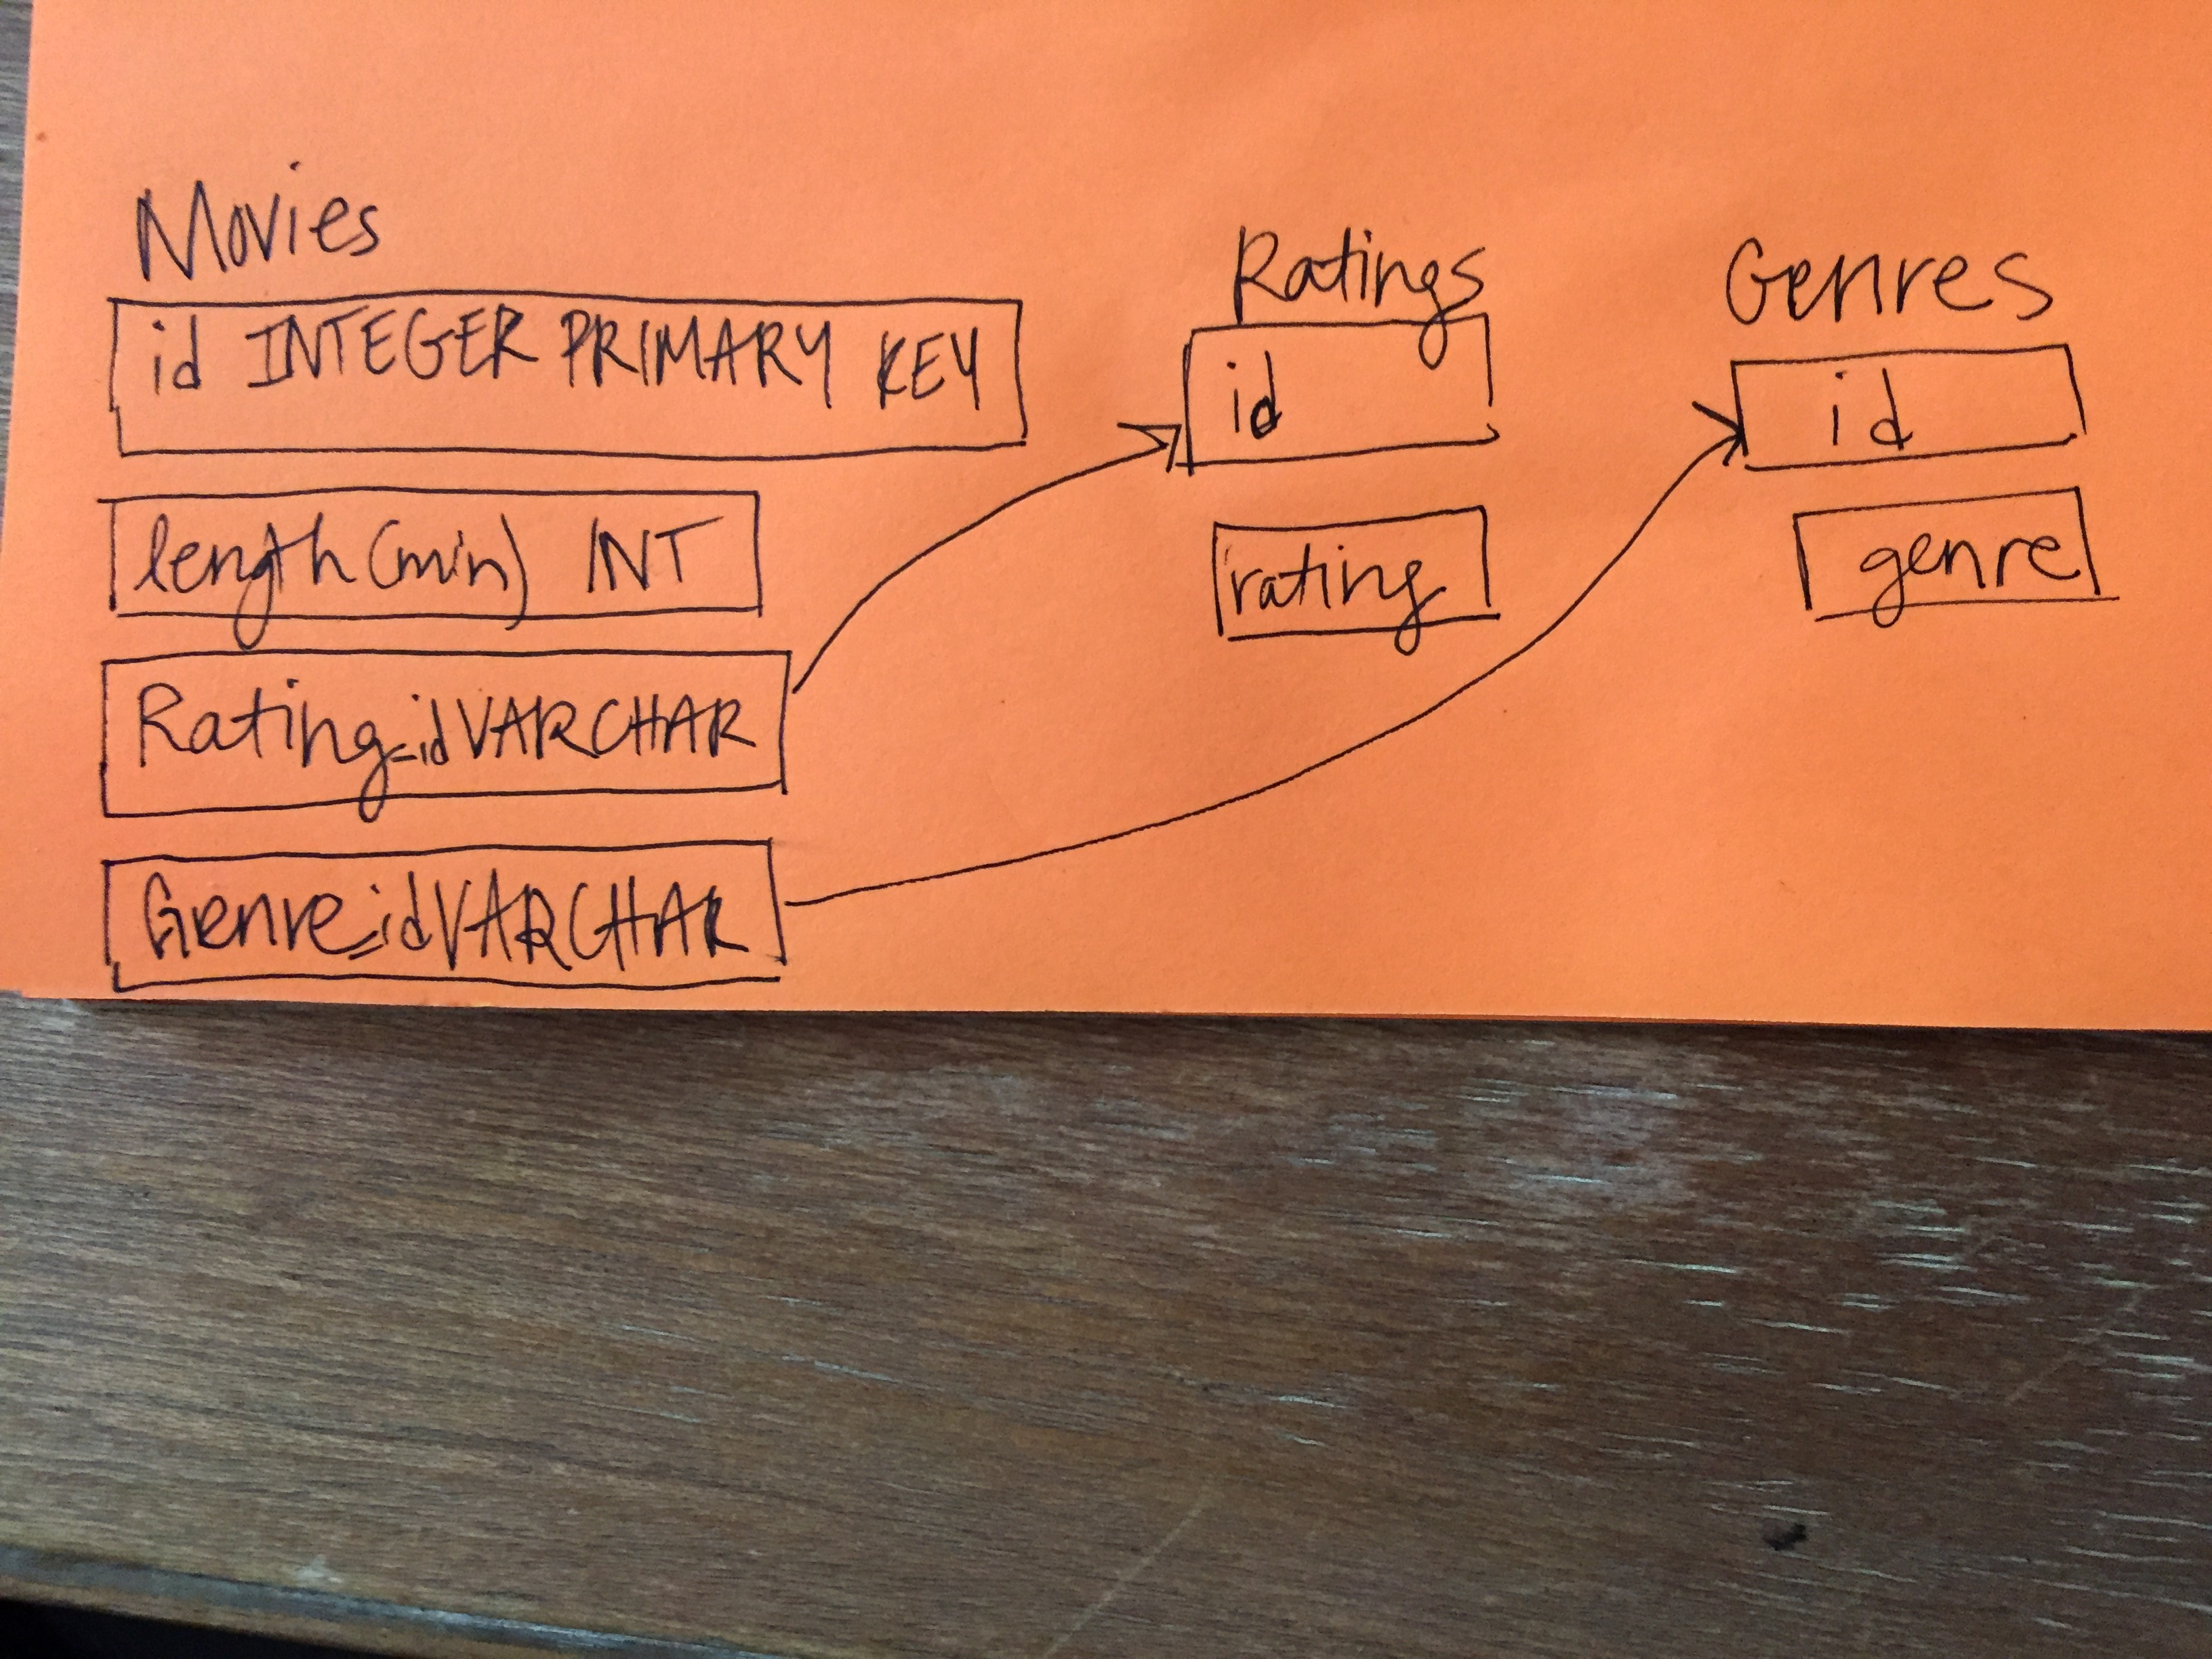 Movies
id INTEGER PRIMARY KEY
length (min) INT
Rating_id VARCHAR
Genre_id VARCHAR
Ratings
id
rating
Genres
id
genre